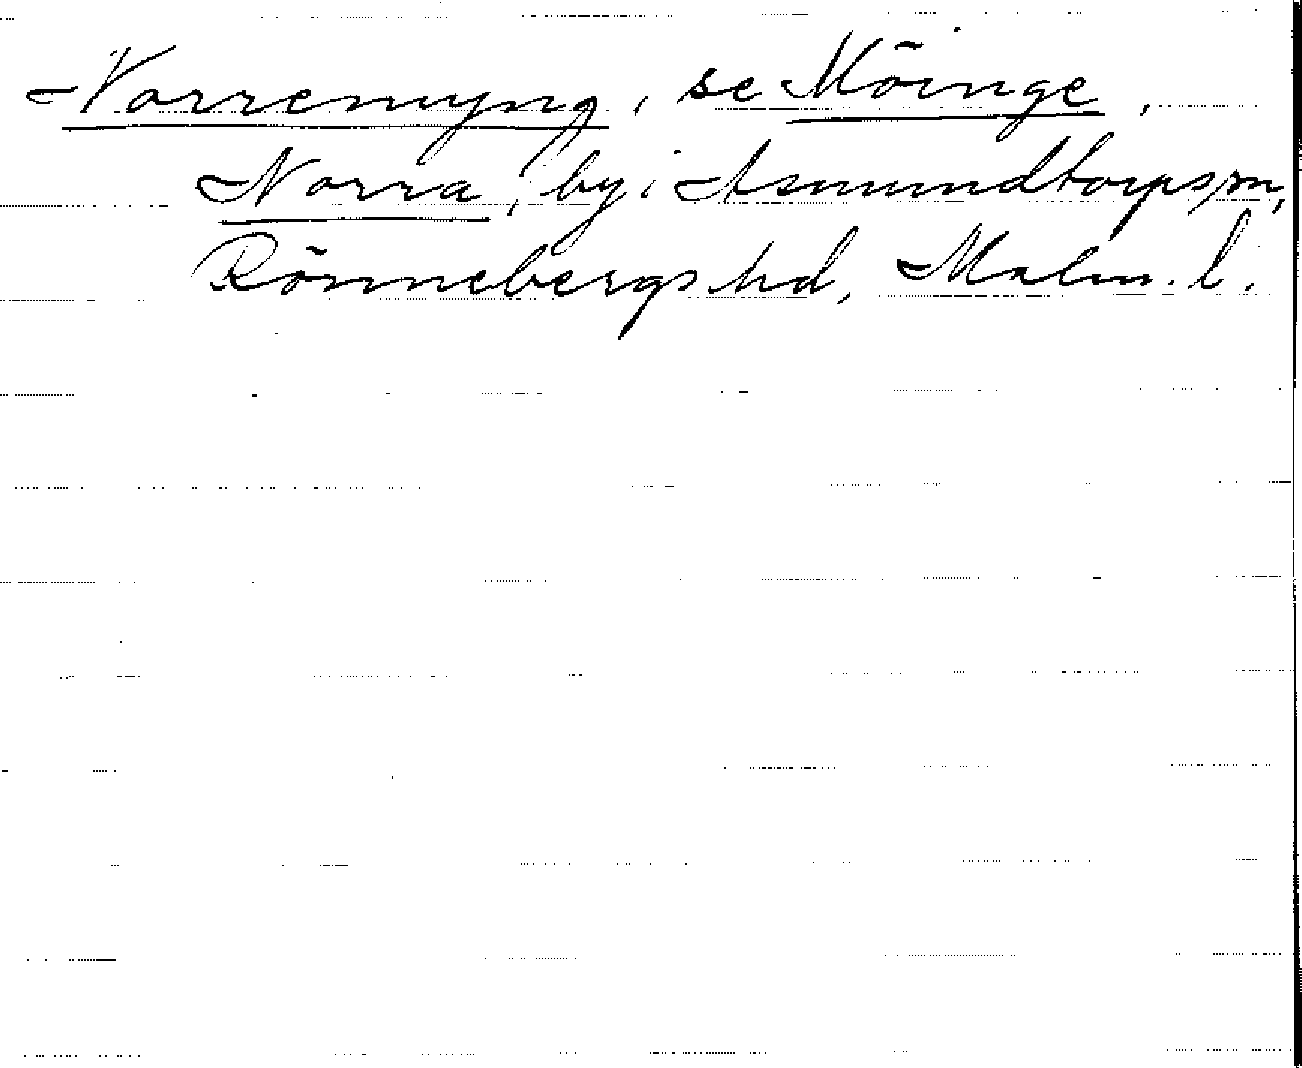 Norremyng, se Möinge,
Norra, by i Asmundtorps sn,
Rönnebergs hd, Malm. l.